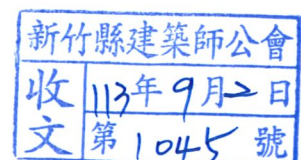 新竹縣建築師公會
收文
113年9月2日
第1045號